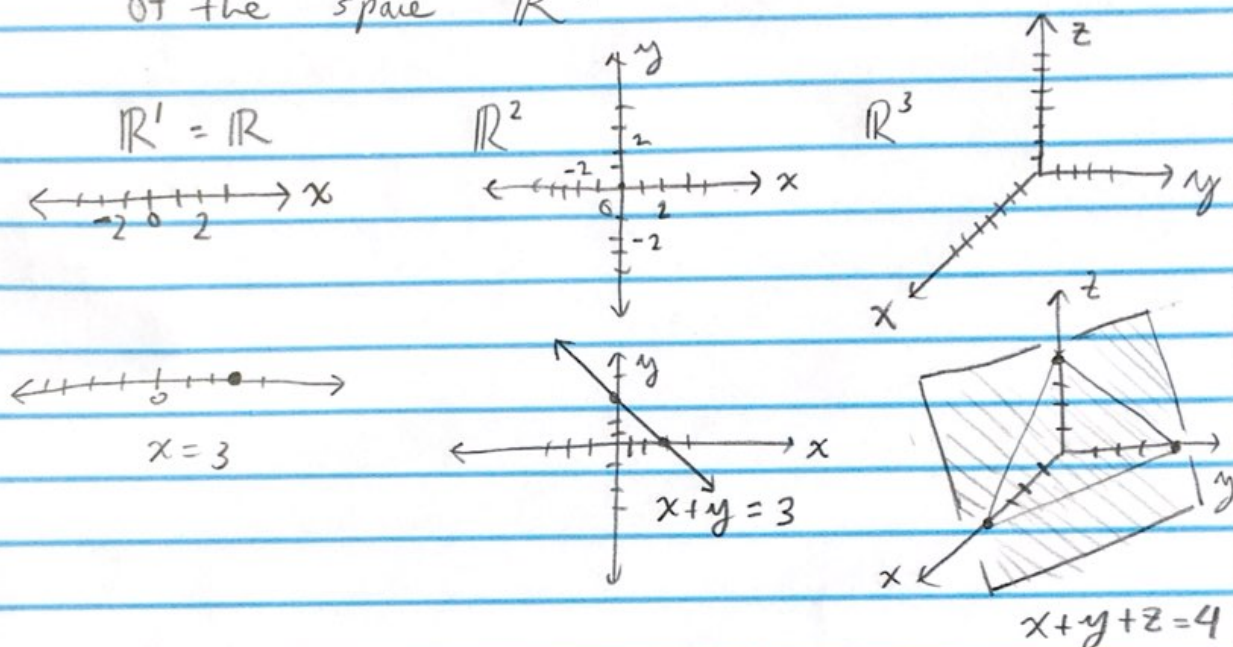 of the space ℝ
ℝ¹ = ℝ
-2 0 2 x
ℝ²
y
2
-2
x
0 2
-2
ℝ³
z
y
x
0
x = 3
y
x
x+y = 3
z
y
x
x+y+z=4